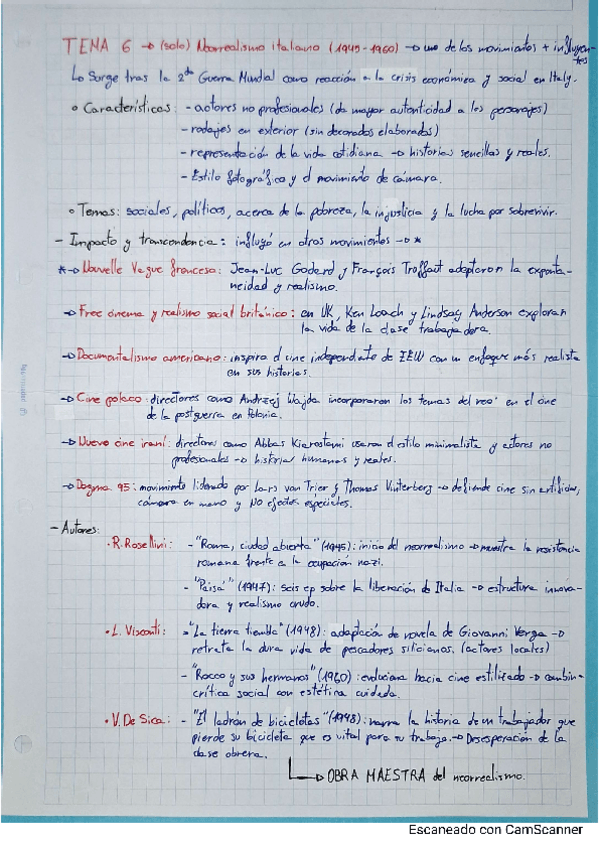 TEMA 6 → (solo) Neorrealismo italiano (1945-1960) → uno de los movimientos + influyentes
↳ Surge tras la 2da Guerra Mundial como reacción a la crisis económica y social en Italy.
• Características: - actores no profesionales (da mayor autenticidad a los personajes)
- rodajes en exterior (sin decorados elaborados)
- representación de la vida cotidiana → historias sencillas y reales.
- Estilo fotográfico y el movimiento de cámara.
• Temas: sociales, políticos, acerca de la pobreza, la injusticia y la lucha por sobrevivir.
- Impacto y transcendencia: influyó en otros movimientos → *
*→ Nouvelle Vague francesa: Jean-Luc Godard y François Truffaut adaptaron la esponta-
neidad y realismo.
→ Free cinema y realismo social británico: en UK, Ken Loach y Lindsay Anderson exploran
la vida de la clase trabajadora.
→ Documentalismo americano: inspira el cine independiente de EEUU con un enfoque más realista
en sus historias.
→ Cine polaco: directores como Andrzej Wajda incorporaron los temas del neo' en el cine
de la postguerra en Polonia.
→ Nuevo cine iraní: directores como Abbas Kiarostami usaron el estilo minimalista y actores no
profesionales → historias humanas y reales.
→ Dogma 95: movimiento liderado por Lars von Trier y Thomas Vinterberg → defiende cine sin artificios,
cámara en mano y NO efectos especiales.
- Autores:
• R. Rosellini: - "Roma, ciudad abierta" (1945): inicio del neorrealismo → muestra la resistencia
romana frente a la ocupación nazi.
- "Paisá" (1947): seis ep sobre la liberación de Italia → estructura innova-
dora y realismo crudo.
• L. Visconti: - "La tierra tiembla" (1948): adaptación de novela de Giovanni Verga →
retrata la dura vida de pescadores sicilianos. (actores locales)
- "Rocco y sus hermanos" (1960): evoluciona hacia cine estilizado → combin-
crítica social con estética cuidada.
• V. De Sica: - "El ladrón de bicicletas" (1948): narra la historia de un trabajador que
pierde su bicicleta que es vital para su trabajo. → Desesperación de la
clase obrera.
↳ OBRA MAESTRA del neorrealismo.
Escaneado con CamScanner